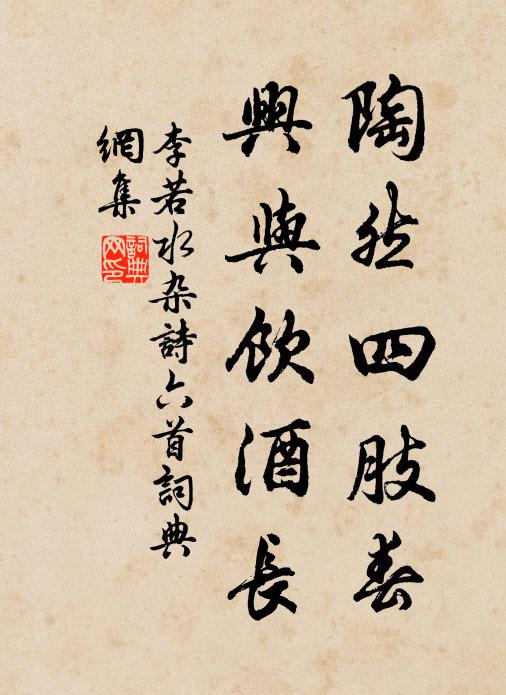 陶然四肢春
興與飲酒長
李若水杂詩六首詞典
網集
詞典
网印